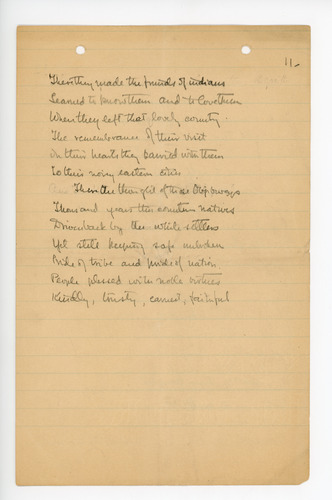 11-
There they made the friends of indians
Learned to know them and to love them
When they left that lovely country
The remembrance of their visit
In their hearts they carried with them
To their noisy eastern cities
There the thought of those Objibways
Thousand years this country natives
Driven back by the white settlers
Yet still keeping safe unbroken
Pride of tribe and pride of nation
People blessed with noble virtues
Kindly, trusty, earnest, faithful